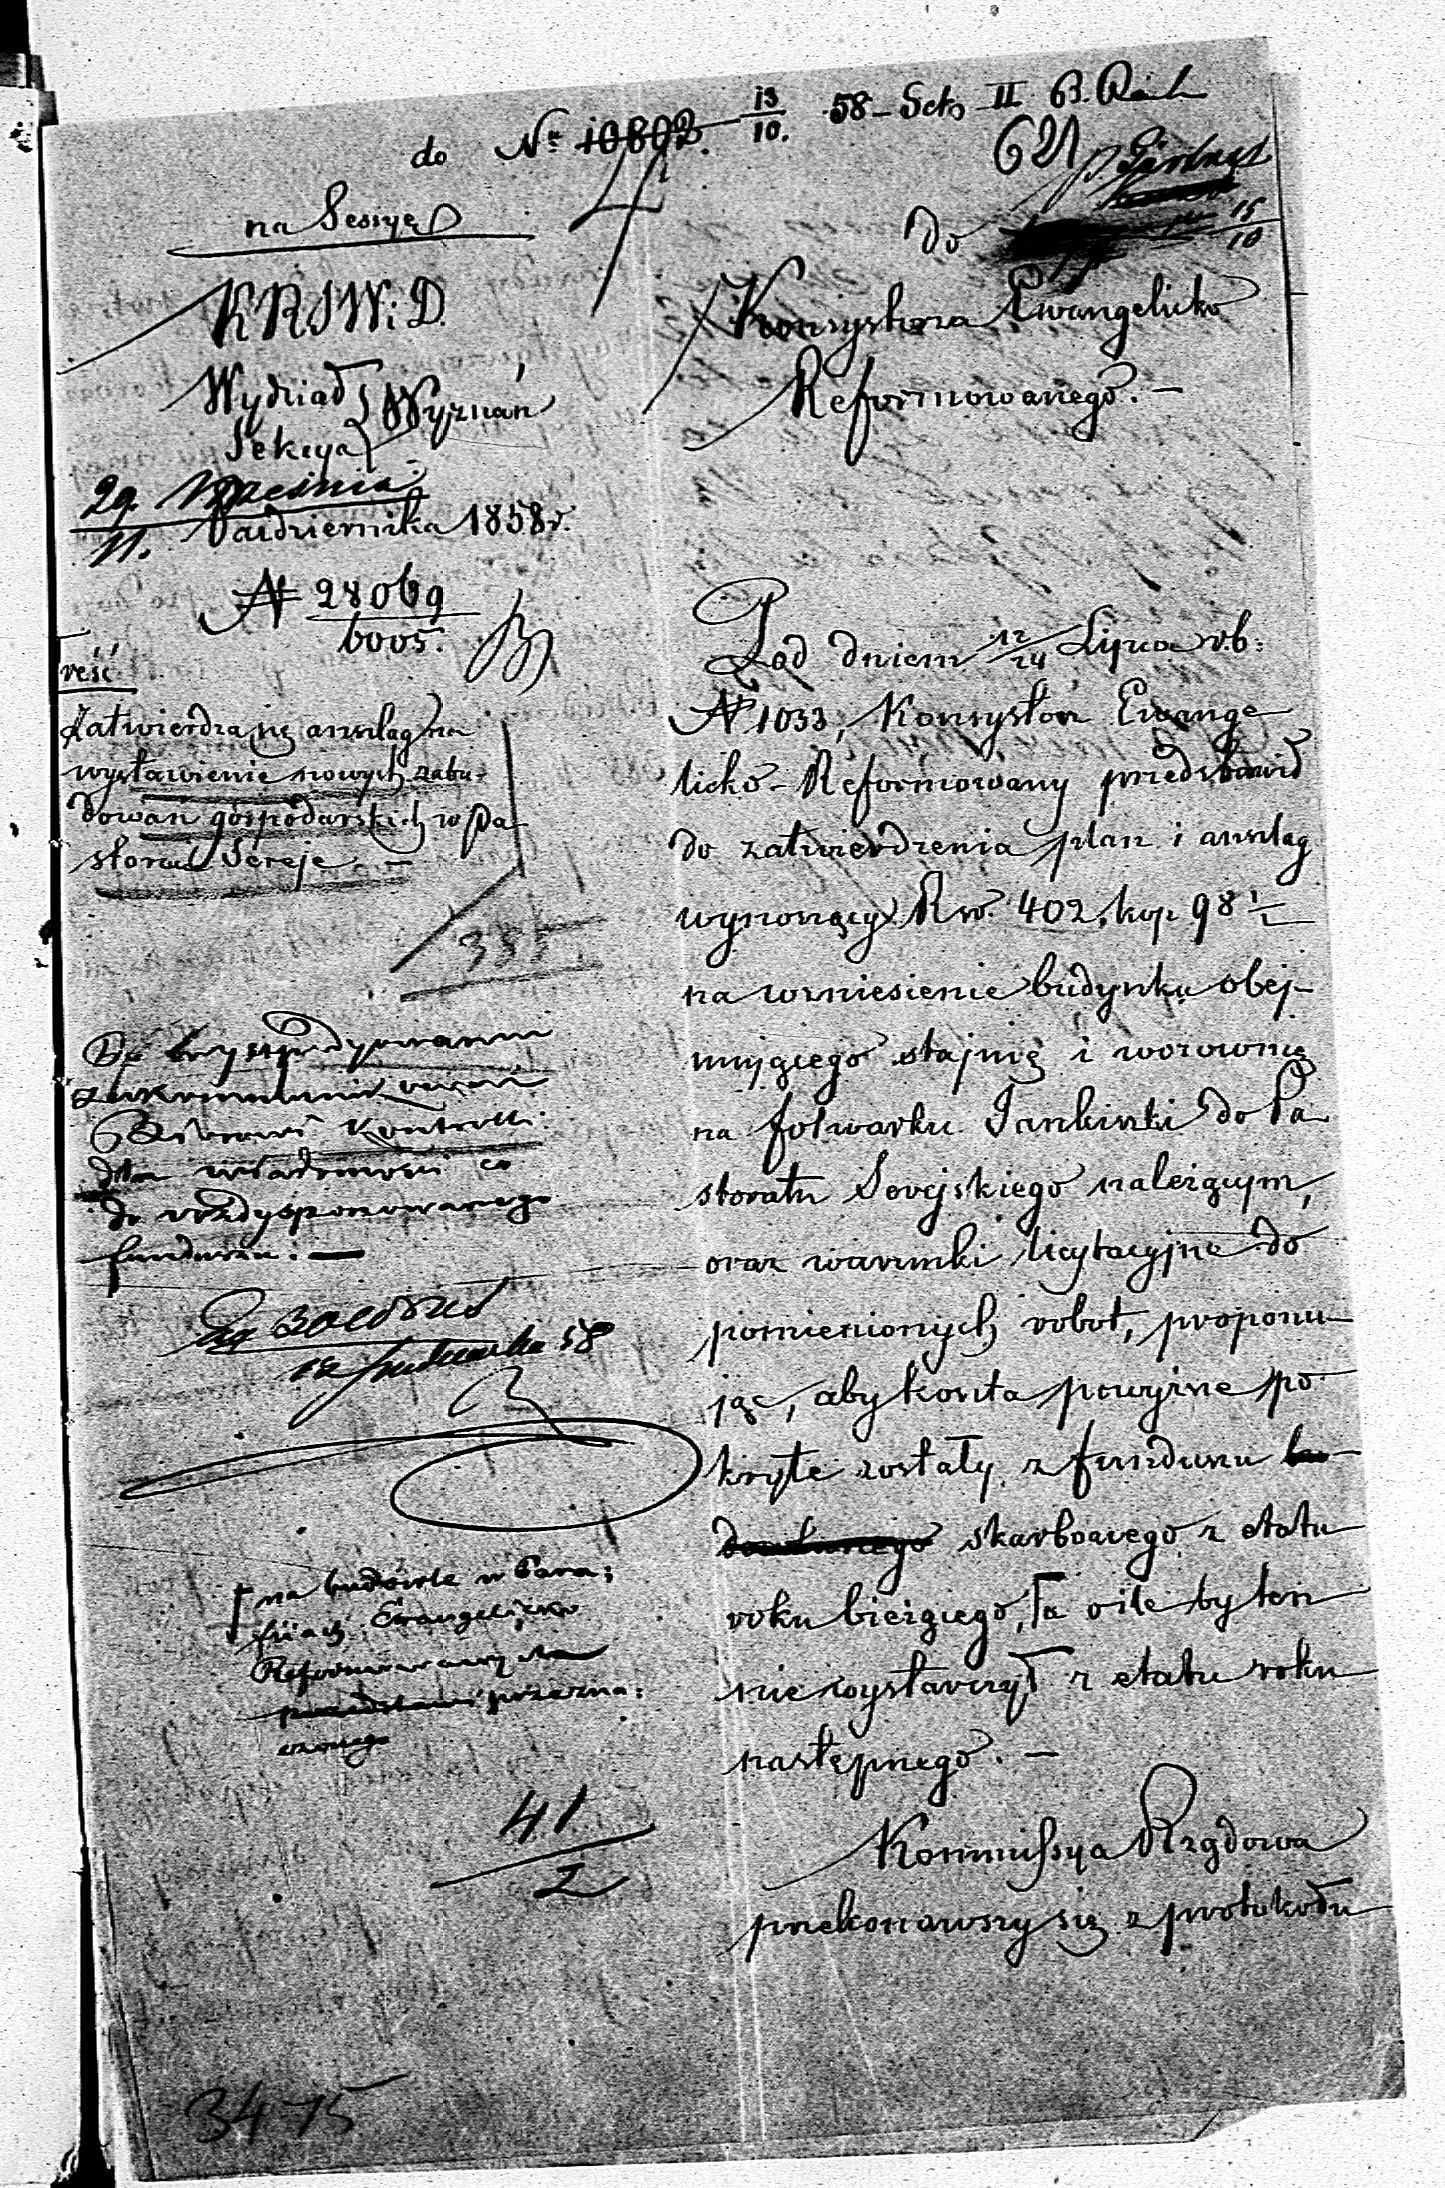 do Nr 10802. 13/10. 58 – Sch II B. Rach
4
621
na Sessyę
KRSW. i D.
Wydział Wyznań
Sekcya
29. Września
11. Października 1858 r.
N 28069
6005.
reść
Zatwierdza się anszlag na
wystawienie nowych zabu-
dowań gospodarskich w Pa-
storacie Sereje –
381
dla wiadomości co
do rozdysponowanego
funduszu. –
12 Października 58
na budowle w Para:
fiach Ewangelicko
Reformowanych
przezna:
czonego
41
2
3475
Do
15
10
Konsystorza Ewangelicko
Reformowanego. –
Pod dniem 12/24 Lipca r.b:
N 1033, Konsystorz Ewange
licko-Reformowany przedstawił
do zatwierdzenia plan i anszlag
wynoszący Rsr. 402, kop 98 1/2
na wzniesienie budynku obej-
mującego stajnię i wozownię
na folwarku Jankiszki do Pa
storatu Serejskiego należącym,
oraz warunki licytacyjne do
pomienionych robót, proponu-
jąc, aby koszta powyższe po
kryte zostały z funduszu bu-
dowlanego skarbowego z etatu
roku bieżącego, a o ile by ten
nie wystarczył z etatu roku
następnego. –
Kommissya Rządowa
przekonawszy się z protokołu